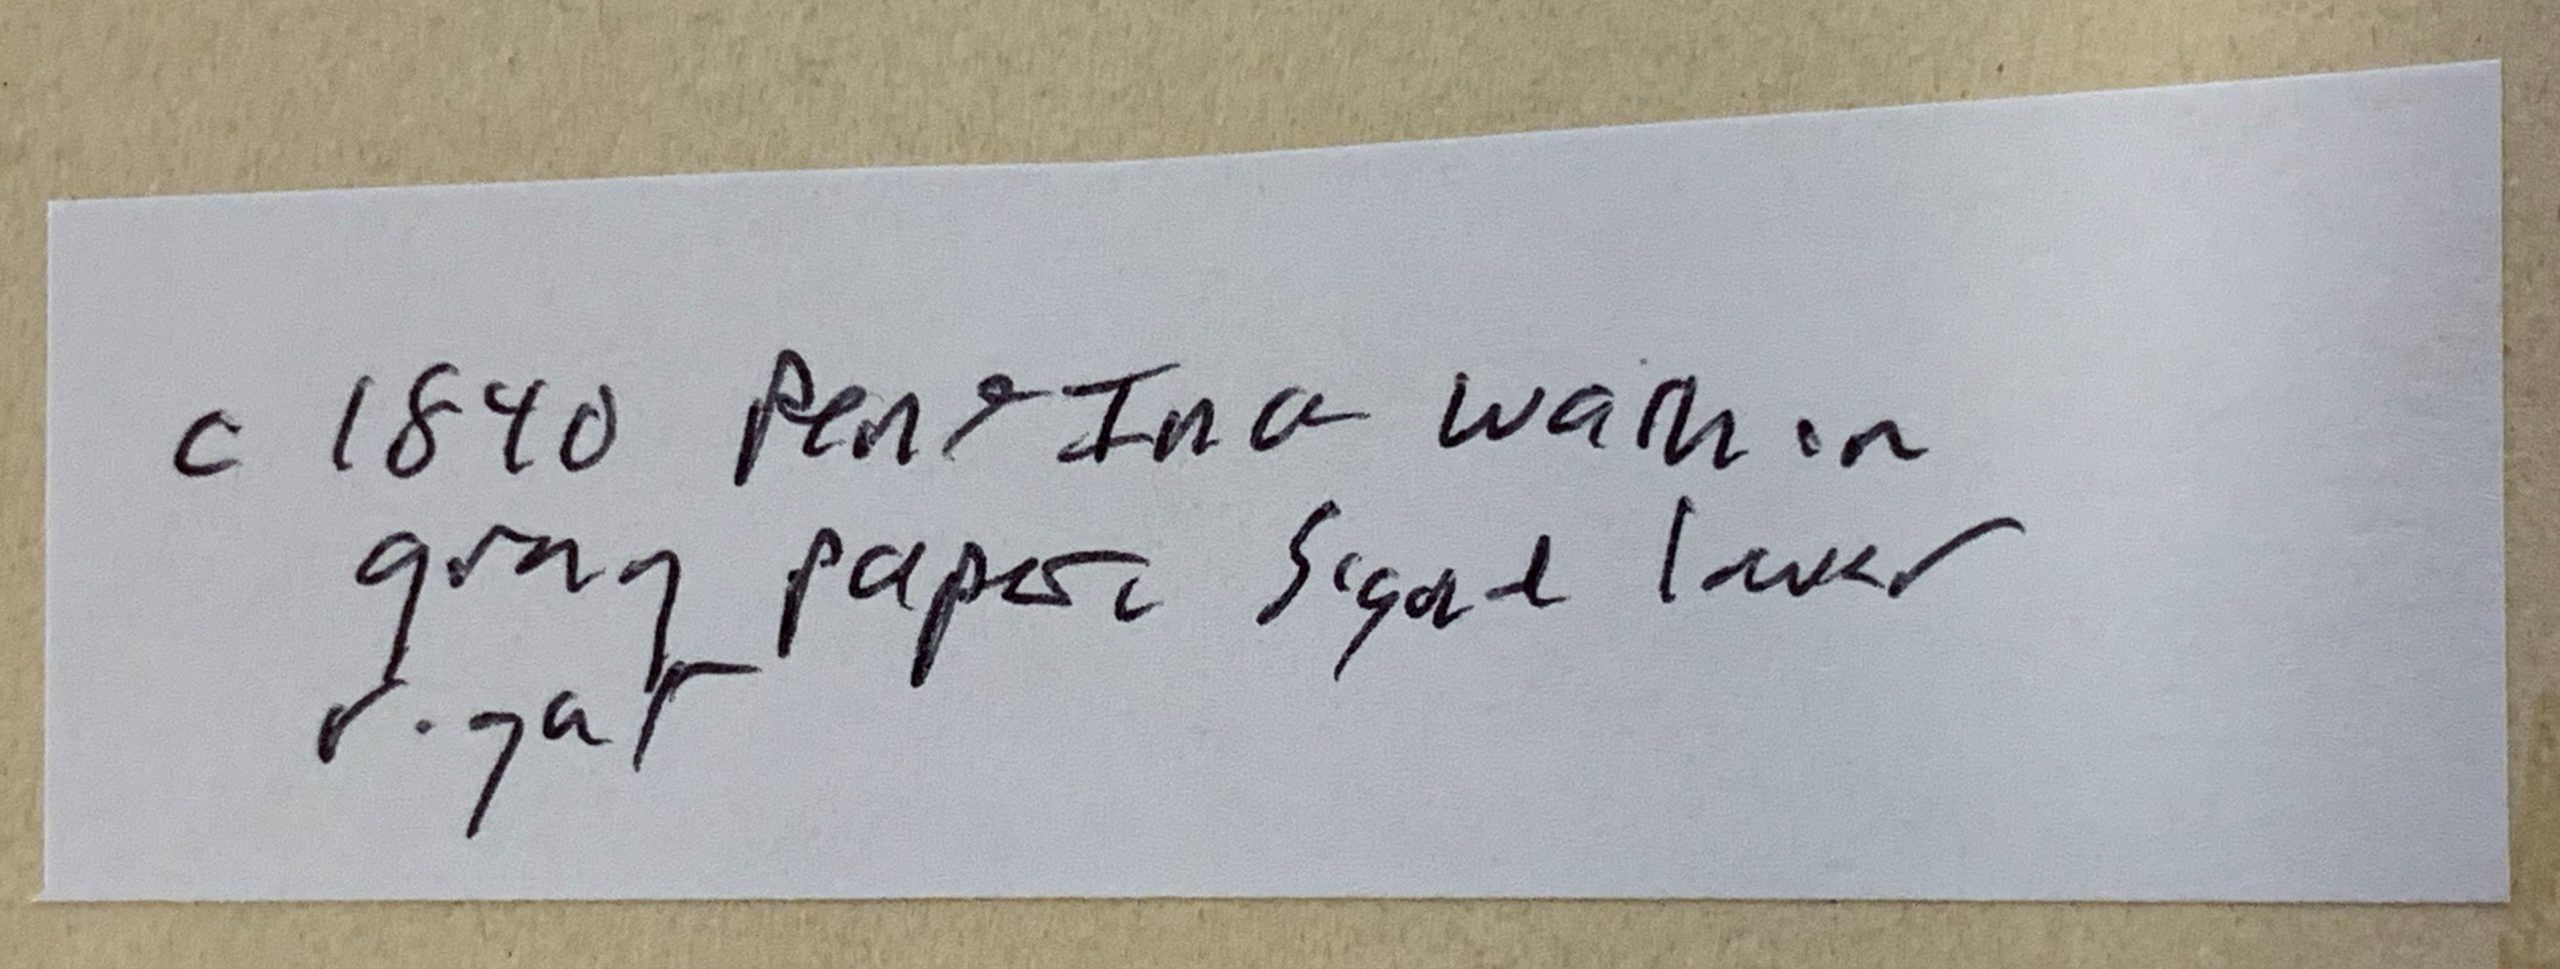 c 1840 Pen & Ink wash on
gray paper Signed lower
right